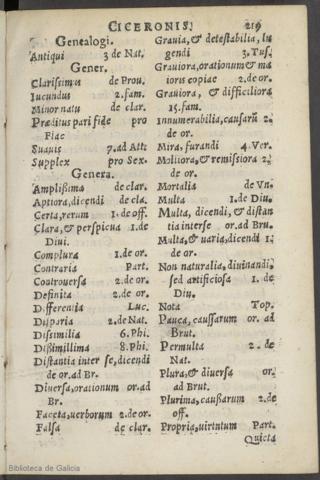 CICERONIS.
219
Genealogi.
Antiqui 3 de Nat.
Gener.
Clarissimus de Prou.
Iucundus 2.fam.
Minor natu de clar.
Præditus pari fide pro
Flac
Suauis 7.ad Att:
Supplex pro Sex.
Genera.
Amplißima de clar.
Aptiora, dicendi de cla.
Certa, rerum 1.de off.
Clara, & perspicua 1.de
Diui.
Complura 1.de or.
Contraria Part.
Controuersa 2.de or.
Definita 2.de or.
Differentia Luc.
Disparia 2.de Nat.
Dissimilia 6.Phi.
Dißimillima 8.Phi.
Distantia inter se, dicendi
de or.ad Br.
Diuersa, orationum or.ad
Br.
Faceta, uerborum 2.de or.
Falsa de clar.
Grauia, & detestabilia, lu
gendi 3.Tus.
Grauiora, orationum & ma
ioris copiae 2.de or.
Grauiora, & difficiliora
15.fam.
Innumerabilia, causarũ 2.
de or.
Mira, furandi 4.Ver.
Molliora, & remissiora 2.
de or.
Mortalia de Vn.
Multa 1.de Diu.
Multa, dicendi, & distan
tia interse or.ad Bru.
Multa, & uaria, dicendi 1.
de or.
Non naturalia, diuinandi,
sed artificiosa 1. de
Diu.
Nota Top.
Pauca, caussarum or. ad
Brut.
Permulta 2. de
Nat.
Plura, & diuersa or.
ad Brut.
Plurima, caußarum 2.de
off.
Propria, uirtutum Part.
Quieta
Biblioteca de Galicia